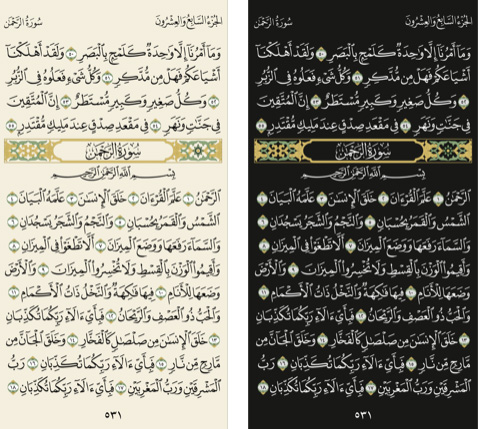 الجُزْءُ السَّابِعُ وَالْعِشْرُونَ سُورَةُ الرَّحْمَٰن
وَمَآ أَمْرُنَآ إِلَّا وَٰحِدَةٌ كَلَمْحٍۭ بِٱلْبَصَرِ ٥٠ وَلَقَدْ أَهْلَكْنَآ
أَشْيَاعَكُمْ فَهَلْ مِن مُّدَّكِرٍ ٥١ وَكُلُّ شَىْءٍ فَعَلُوهُ فِى ٱلزُّبُرِ
٥٢ وَكُلُّ صَغِيرٍ وَكَبِيرٍ مُّسْتَطَرٌ ٥٣ إِنَّ ٱلْمُتَّقِينَ
فِى جَنَّٰتٍ وَنَهَرٍ ٥٤ فِى مَقْعَدِ صِدْقٍ عِندَ مَلِيكٍ مُّقْتَدِرٍۭ ٥٥
سُورَةُ الرَّحْمَٰن
بِسْمِ ٱللَّهِ ٱلرَّحْمَٰنِ ٱلرَّحِيمِ
ٱلرَّحْمَٰنُ ١ عَلَّمَ ٱلْقُرْءَانَ ٢ خَلَقَ ٱلْإِنسَٰنَ ٣ عَلَّمَهُ ٱلْبَيَانَ ٤
ٱلشَّمْسُ وَٱلْقَمَرُ بِحُسْبَانٍ ٥ وَٱلنَّجْمُ وَٱلشَّجَرُ يَسْجُدَانِ ٦
وَٱلسَّمَآءَ رَفَعَهَا وَوَضَعَ ٱلْمِيزَانَ ٧ أَلَّا تَطْغَوْا۟ فِى ٱلْمِيزَانِ ٨
وَأَقِيمُوا۟ ٱلْوَزْنَ بِٱلْقِسْطِ وَلَا تُخْسِرُوا۟ ٱلْمِيزَانَ ٩ وَٱلْأَرْضَ
وَضَعَهَا لِلْأَنَامِ ١٠ فِيهَا فَٰكِهَةٌ وَٱلنَّخْلُ ذَاتُ ٱلْأَكْمَامِ ١١
وَٱلْحَبُّ ذُو ٱلْعَصْفِ وَٱلرَّيْحَانُ ١٢ فَبِأَىِّ ءَالَآءِ رَبِّكُمَا تُكَذِّبَانِ
١٣ خَلَقَ ٱلْإِنسَٰنَ مِن صَلْصَٰلٍ كَٱلْفَخَّارِ ١٤ وَخَلَقَ ٱلْجَآنَّ مِن
مَّارِجٍ مِّن نَّارٍ ١٥ فَبِأَىِّ ءَالَآءِ رَبِّكُمَا تُكَذِّبَانِ ١٦ رَبُّ
ٱلْمَشْرِقَيْنِ وَرَبُّ ٱلْمَغْرِبَيْنِ ١٧ فَبِأَىِّ ءَالَآءِ رَبِّكُمَا تُكَذِّبَانِ ١٨
٥٣١
الجُزْءُ السَّابِعُ وَالْعِشْرُونَ سُورَةُ الرَّحْمَٰن
وَمَآ أَمْرُنَآ إِلَّا وَٰحِدَةٌ كَلَمْحٍۭ بِٱلْبَصَرِ ٥٠ وَلَقَدْ أَهْلَكْنَآ
أَشْيَاعَكُمْ فَهَلْ مِن مُّدَّكِرٍ ٥١ وَكُلُّ شَىْءٍ فَعَلُوهُ فِى ٱلزُّبُرِ
٥٢ وَكُلُّ صَغِيرٍ وَكَبِيرٍ مُّسْتَطَرٌ ٥٣ إِنَّ ٱلْمُتَّقِينَ
فِى جَنَّٰتٍ وَنَهَرٍ ٥٤ فِى مَقْعَدِ صِدْقٍ عِندَ مَلِيكٍ مُّقْتَدِرٍۭ ٥٥
سُورَةُ الرَّحْمَٰن
بِسْمِ ٱللَّهِ ٱلرَّحْمَٰنِ ٱلرَّحِيمِ
ٱلرَّحْمَٰنُ ١ عَلَّمَ ٱلْقُرْءَانَ ٢ خَلَقَ ٱلْإِنسَٰنَ ٣ عَلَّمَهُ ٱلْبَيَانَ ٤
ٱلشَّمْسُ وَٱلْقَمَرُ بِحُسْبَانٍ ٥ وَٱلنَّجْمُ وَٱلشَّجَرُ يَسْجُدَانِ ٦
وَٱلسَّمَآءَ رَفَعَهَا وَوَضَعَ ٱلْمِيزَانَ ٧ أَلَّا تَطْغَوْا۟ فِى ٱلْمِيزَانِ ٨
وَأَقِيمُوا۟ ٱلْوَزْنَ بِٱلْقِسْطِ وَلَا تُخْسِرُوا۟ ٱلْمِيزَانَ ٩ وَٱلْأَرْضَ
وَضَعَهَا لِلْأَنَامِ ١٠ فِيهَا فَٰكِهَةٌ وَٱلنَّخْلُ ذَاتُ ٱلْأَكْمَامِ ١١
وَٱلْحَبُّ ذُو ٱلْعَصْفِ وَٱلرَّيْحَانُ ١٢ فَبِأَىِّ ءَالَآءِ رَبِّكُمَا تُكَذِّبَانِ
١٣ خَلَقَ ٱلْإِنسَٰنَ مِن صَلْصَٰلٍ كَٱلْفَخَّارِ ١٤ وَخَلَقَ ٱلْجَآنَّ مِن
مَّارِجٍ مِّن نَّارٍ ١٥ فَبِأَىِّ ءَالَآءِ رَبِّكُمَا تُكَذِّبَانِ ١٦ رَبُّ
ٱلْمَشْرِقَيْنِ وَرَبُّ ٱلْمَغْرِبَيْنِ ١٧ فَبِأَىِّ ءَالَآءِ رَبِّكُمَا تُكَذِّبَانِ ١٨
٥٣١